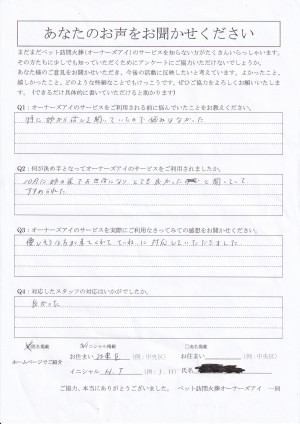 あなたのお声をお聞かせください
まだまだペット訪問火葬(オーナーズアイ)のサービスを知らない方がたくさんいらっしゃいます。
その方たちに少しでも知っていただくためにアンケートにご協力いただけないでしょうか。
あなた様のご意見をお聞かせいただき、今後の活動に反映したいと考えています。よかったこと、
嬉しかったこと、どのような些細なことでもけっこうです。ぜひご協力をよろしくお願いいたします。(できるだけ具体的に書いていただけると助かります)
Q1：オーナーズアイのサービスをご利用される前に悩んでいたことをお教えください。
特に姉から話しを聞いていたので悩みはなかった
Q2：何が決め手となってオーナーズアイのサービスをご利用されましたか。
10月に姉の家でお世話になりとても良かったと聞いていて
すすめられた
Q3：オーナーズアイのサービスを実際にご利用なさってみての感想をお聞かせください。
優しそうな方が来てくれてていねいに対応していただきました
Q4：対応したスタッフの対応はいかがでしたか。
良かった
ホームページでご紹介
イニシャル掲載
お住まい
(例：中央区)
お住まい
(例：中央区)
イニシャル H.T (例：J．H)
氏名
ご協力、本当にありがとうございました。 ペット訪問火葬オーナーズアイ 一同